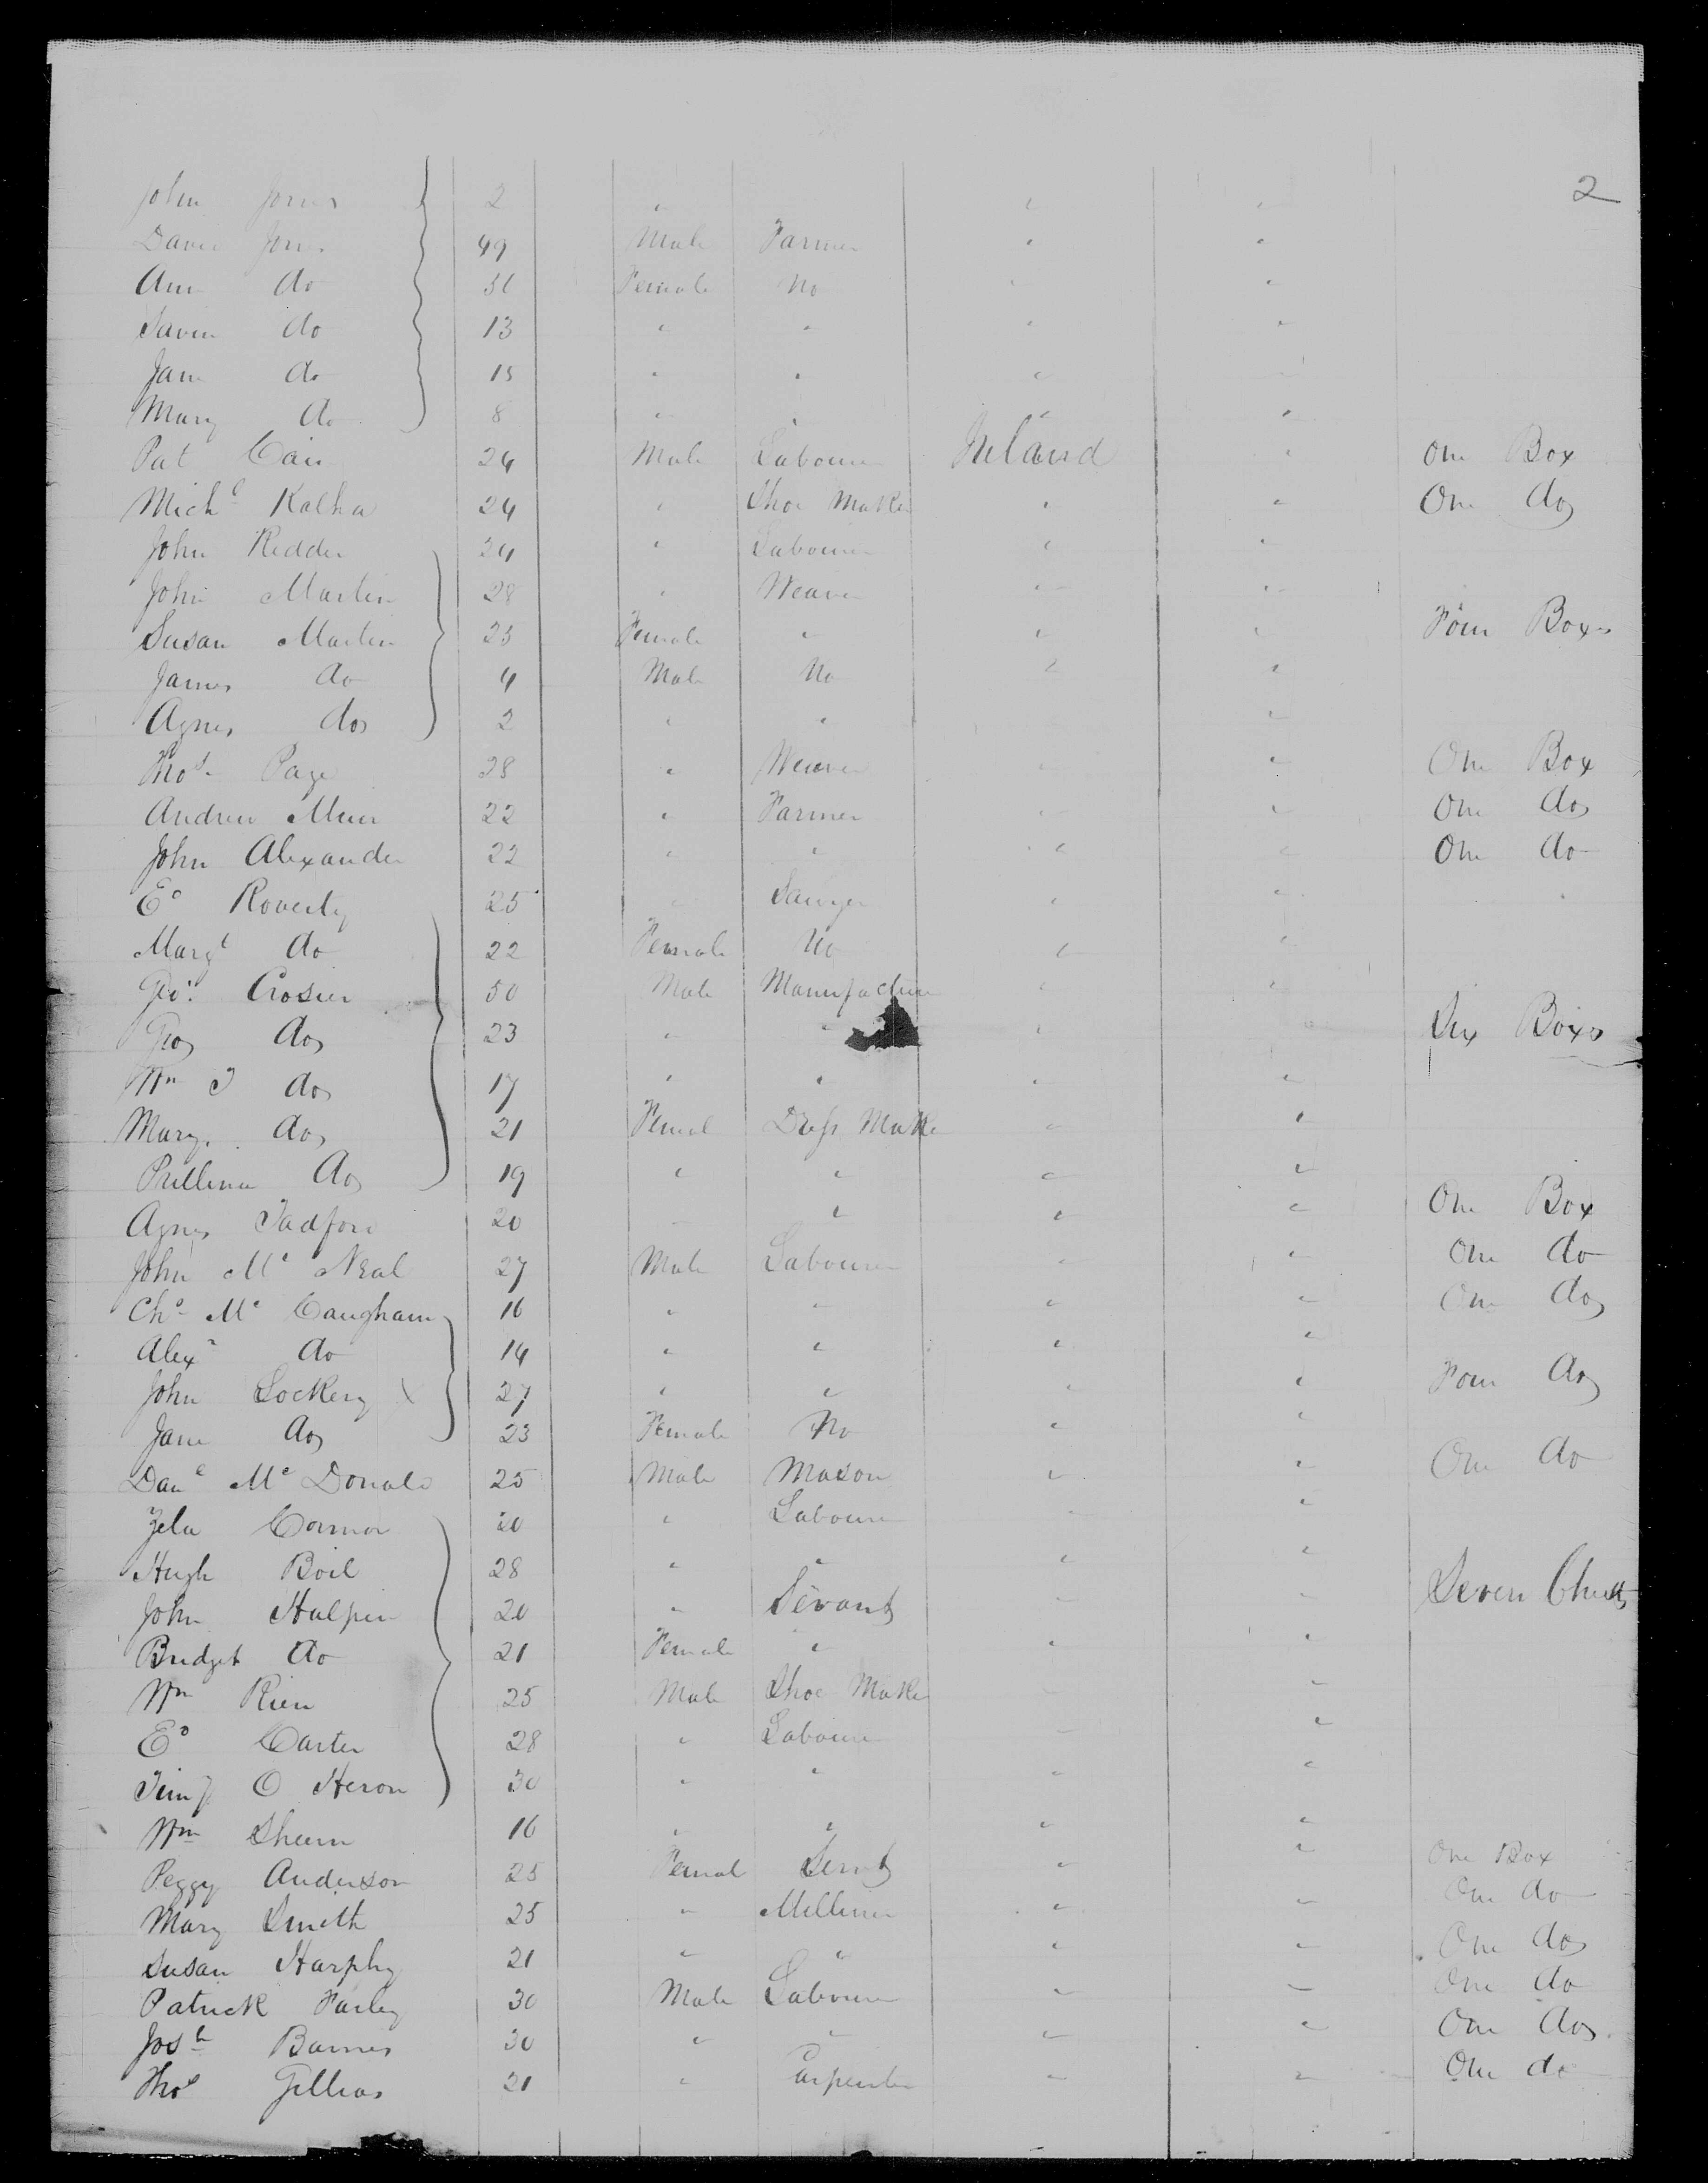 2
John Jones 2 "  " "
David Jones 49 Male Farmer " "
Ann do 36 Female No " "
do 13 " " " "
Jane do 15 " " " "
Mary do 8 " " " "
Pat Cain 24 Male Labourer Ireland " One Box
Michl Kalha 24 " Shoe Maker " " One do
John Redder 24 " Labourer " "
John Martin 28 " Weaver " "
Susan Martin 23 Female " " " Four Boxes
James do 4 Male No " "
Agnes do 2 " " "
Thos Page 28 " Weaver " " One Box
Andrew Muir 22 " Farmer " " One do
John Alexander 22 " " " " One do
Ed Roverty 25 " Sawyer " "
Margt do 22 Female No " "
Geo. Crosier 50 Male Manufacturer " "
Geo do 23 " " " " Six Boxes
Wm J do 17 " " " "
Mary do 21 Femal Dress Maker " "
do 19 " " " "
Agnes Tadford 20 " " " " One Box
John Mc Neal 27 Male Labourer " " One do
Chs Mc Caugham 16 " " " " One do
Alexr do 14 " " " "
John Lockery 27 " " " " Four do
Jane do 23 Female No " "
Danl Mc Donald 25 Male Mason " " One do
Connor 20 " Labourer " "
Hugh Boil 28 " " " "
John Halpin 20 " Servant " " Seven Chests
Bridget do 21 Female " " "
Wm Rien 25 Male Shoe Maker " "
Ed Carter 28 " Labourer " "
Timy O Heron 30 " " "
Wm Sheern 16 " " " "
Peggy Anderson 25 Femal Servt " " One Box
Mary Smith 25 " Milliner " " One do
Susan Harphy 21 " " " " One do
Patrick Farley 30 Male Labourer " " One do
Josh Barnes 30 " " " " One do
Thos Gillias 21 " Carpenter " " One do